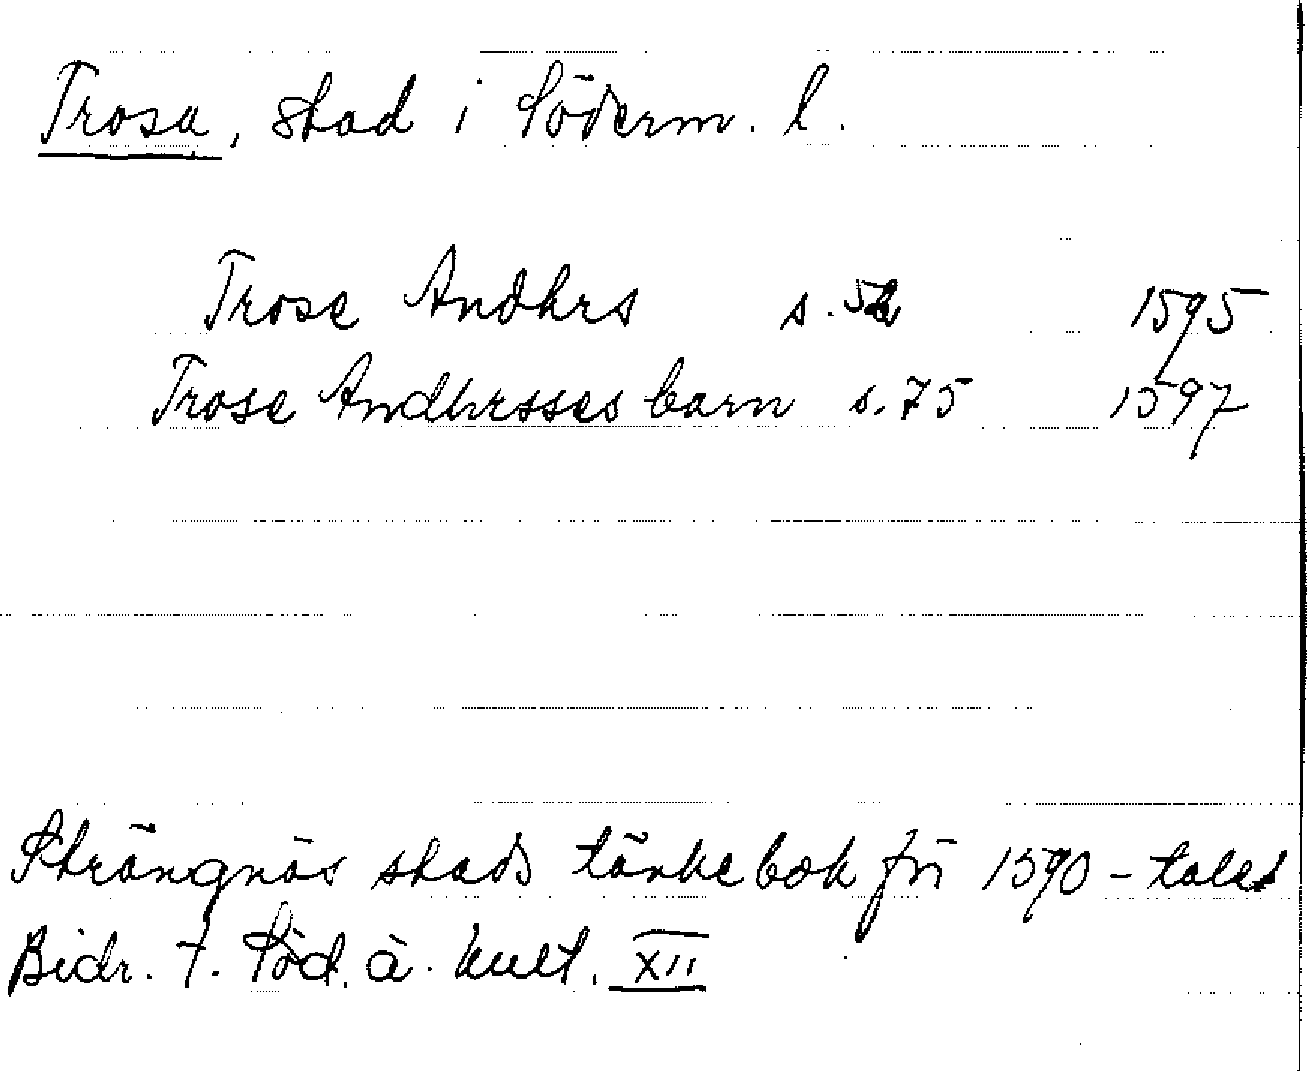 Trosa, stad i Söderm. l.
Trose Andhrs s. 52 1595
Trose Andhrsses barn s. 75 1597
Strängnäs stads tänkebok frĩ 1590-talet
Bidr. t. Söd. ä. kult. XII